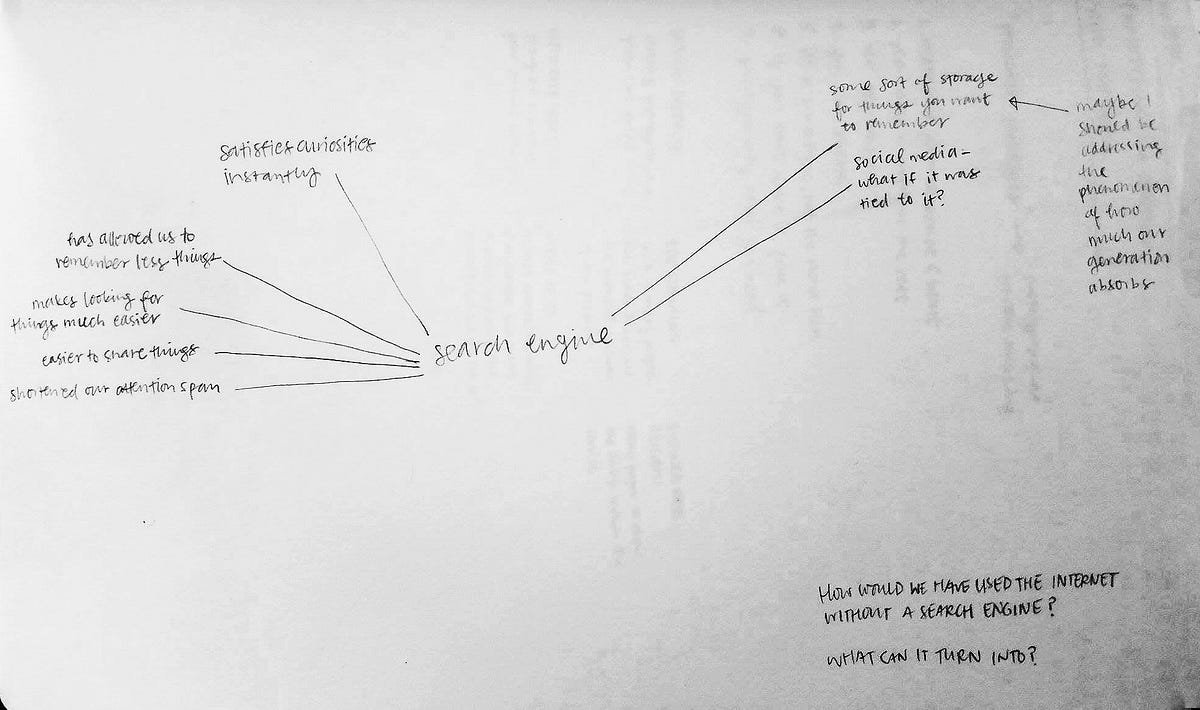 satisfies curiosities
instantly
has allowed us to
remember less things
makes looking for
things much easier
easier to share things
shortened our attention span
search engine
some sort of storage
for things you want
to remember
social media -
what if it was
tied to it?
maybe I
should be
addressing
the
phenomenon
of how
much our
generation
absorbs
HOW WOULD WE HAVE USED THE INTERNET
WITHOUT A SEARCH ENGINE?
WHAT CAN IT TURN INTO?